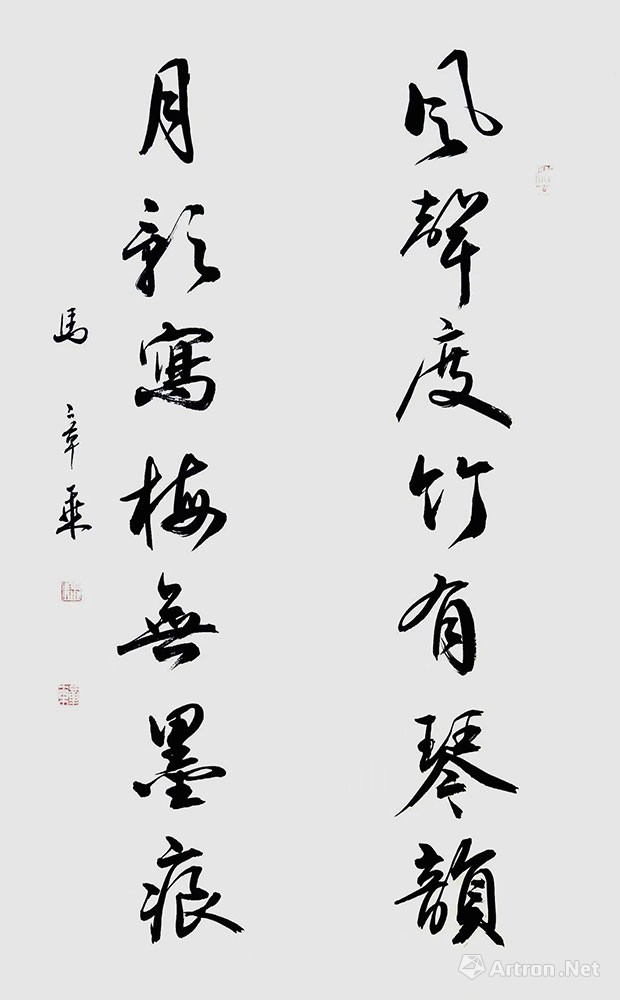 風聲度竹有琴韻
月影寫梅無墨痕
馬章乘
Artron.Net